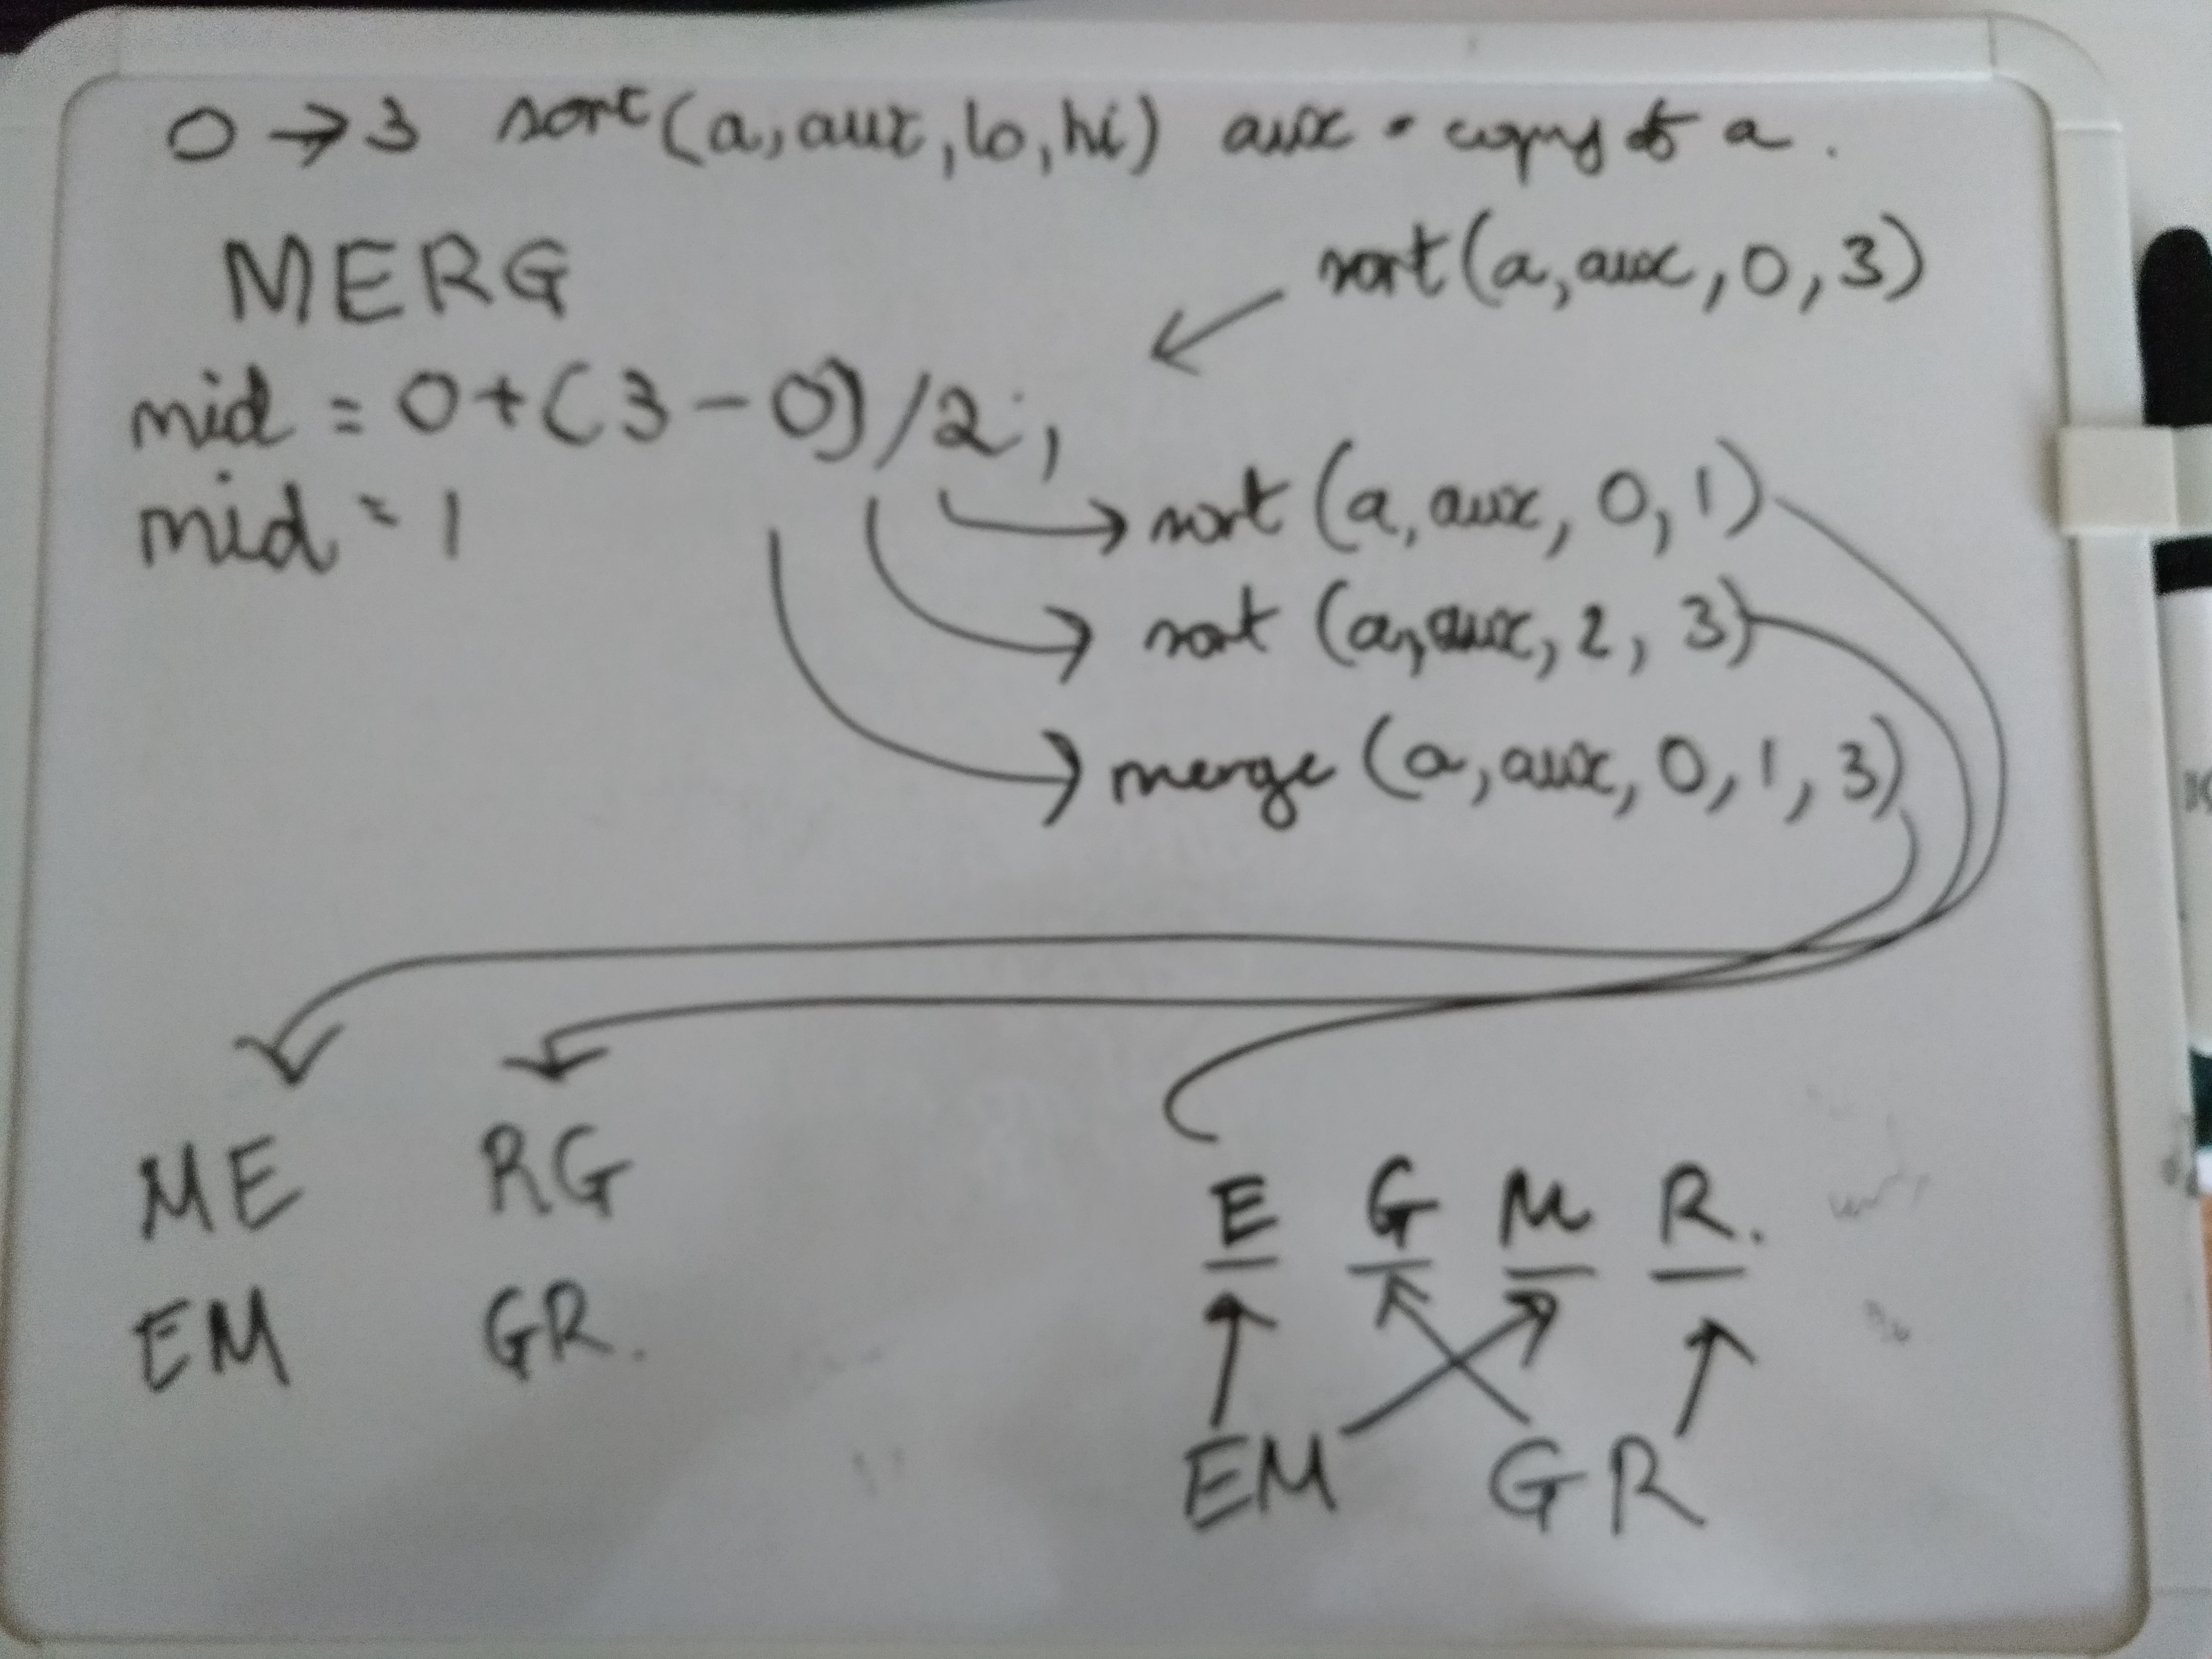 0 → 3 sort(a, aux, lo, hi) aux = copy of a.
MERG
sort(a, aux, 0, 3)
mid = 0+(3-0)/2;
mid = 1
sort (a, aux, 0, 1)
sort (a, aux, 2, 3)
merge (a, aux, 0, 1, 3)
ME RG
EM GR.
E G M R.
EM GR